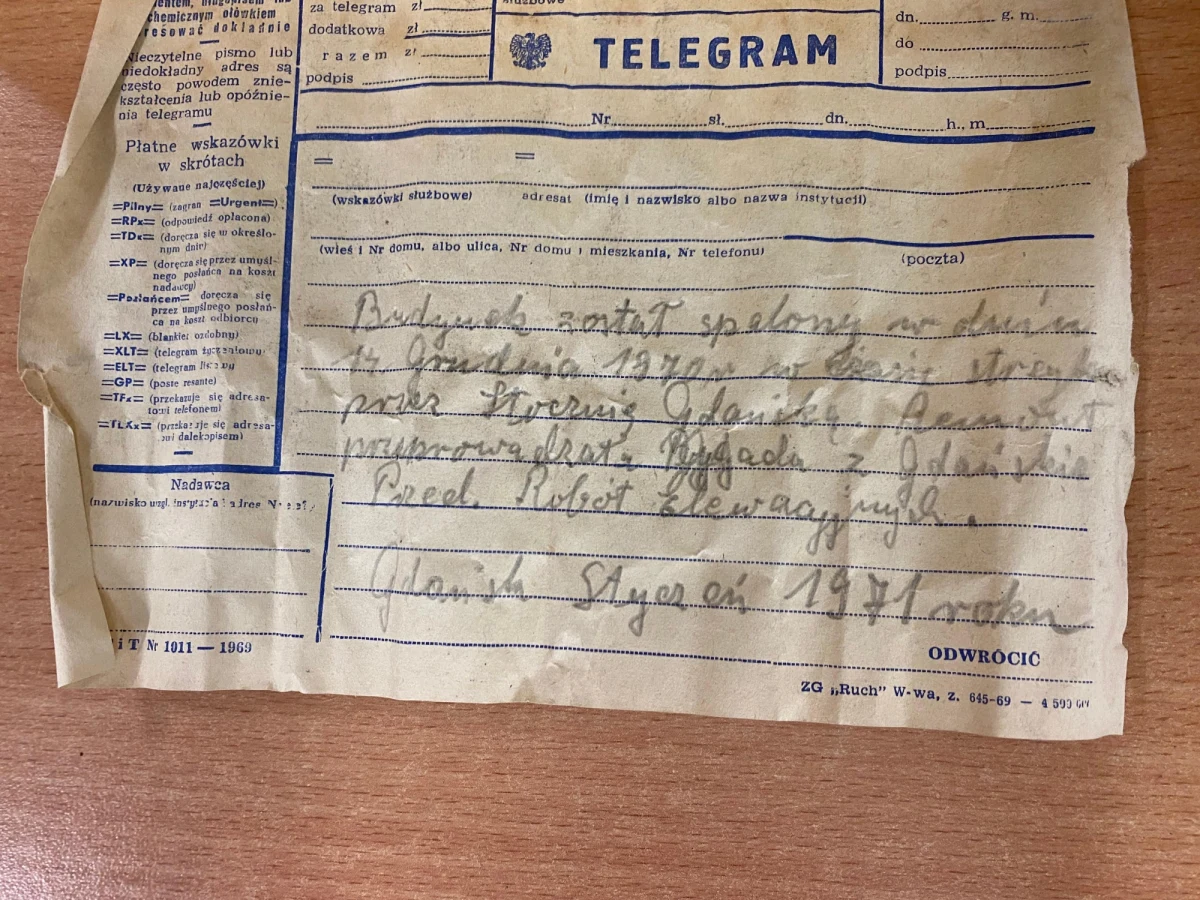 chemicznym ołówkiem
dokładnie
Nieczytelne pismo lub
niedokładny adres są
często powodem znie-
kształcenia lub opóźnie-
nia telegramu
Płatne wskazówki
w skrótach
(Używane najczęściej)
=Pilny= (zagran =Urgent=)
=RPx= (odpowiedź opłacona)
=TDx= (doręcza się w określo-
nym dniu)
=XP= (doręcza się przez umyśl-
nego posłańca na koszt
nadawcy)
=Posłańcem= doręcza się
przez umyślnego posłań-
ca na koszt odbiorcy
=LX= (blankiet ozdobny)
=XLT= (telegram życzeniowy)
=ELT= (telegram
=GP= (poste resante)
=TFx= (przekazuje się adresa-
towi telefonem)
=TLXx= (przekazuje się adresa-
dalekopisem)
Nadawca
(nazwisko wzgl.
i T Nr 1011 — 1969
za telegram zł
dodatkowa zł
razem zł
podpis
służbowe
TELEGRAM
dn. g. m.
do
podpis
Nr sł. dn. h., m
= =
(wskazówki służbowe) adresat (imię i nazwisko albo nazwa instytucji)
(wieś i Nr domu, albo ulica, Nr domu i mieszkania, Nr telefonu) (poczta)
Budynek został spalony w dniu
14 Grudnia 1970r w czasie strajku
przez Stocznię Gdańską. Remont
przeprowadzała Brygada z Gdańskie
Przed. Robót Elewacyjnych.
Gdańsk Styczeń 1971 roku
ODWRÓCIĆ
ZG „Ruch” W-wa, z. 645-69 — 4 500